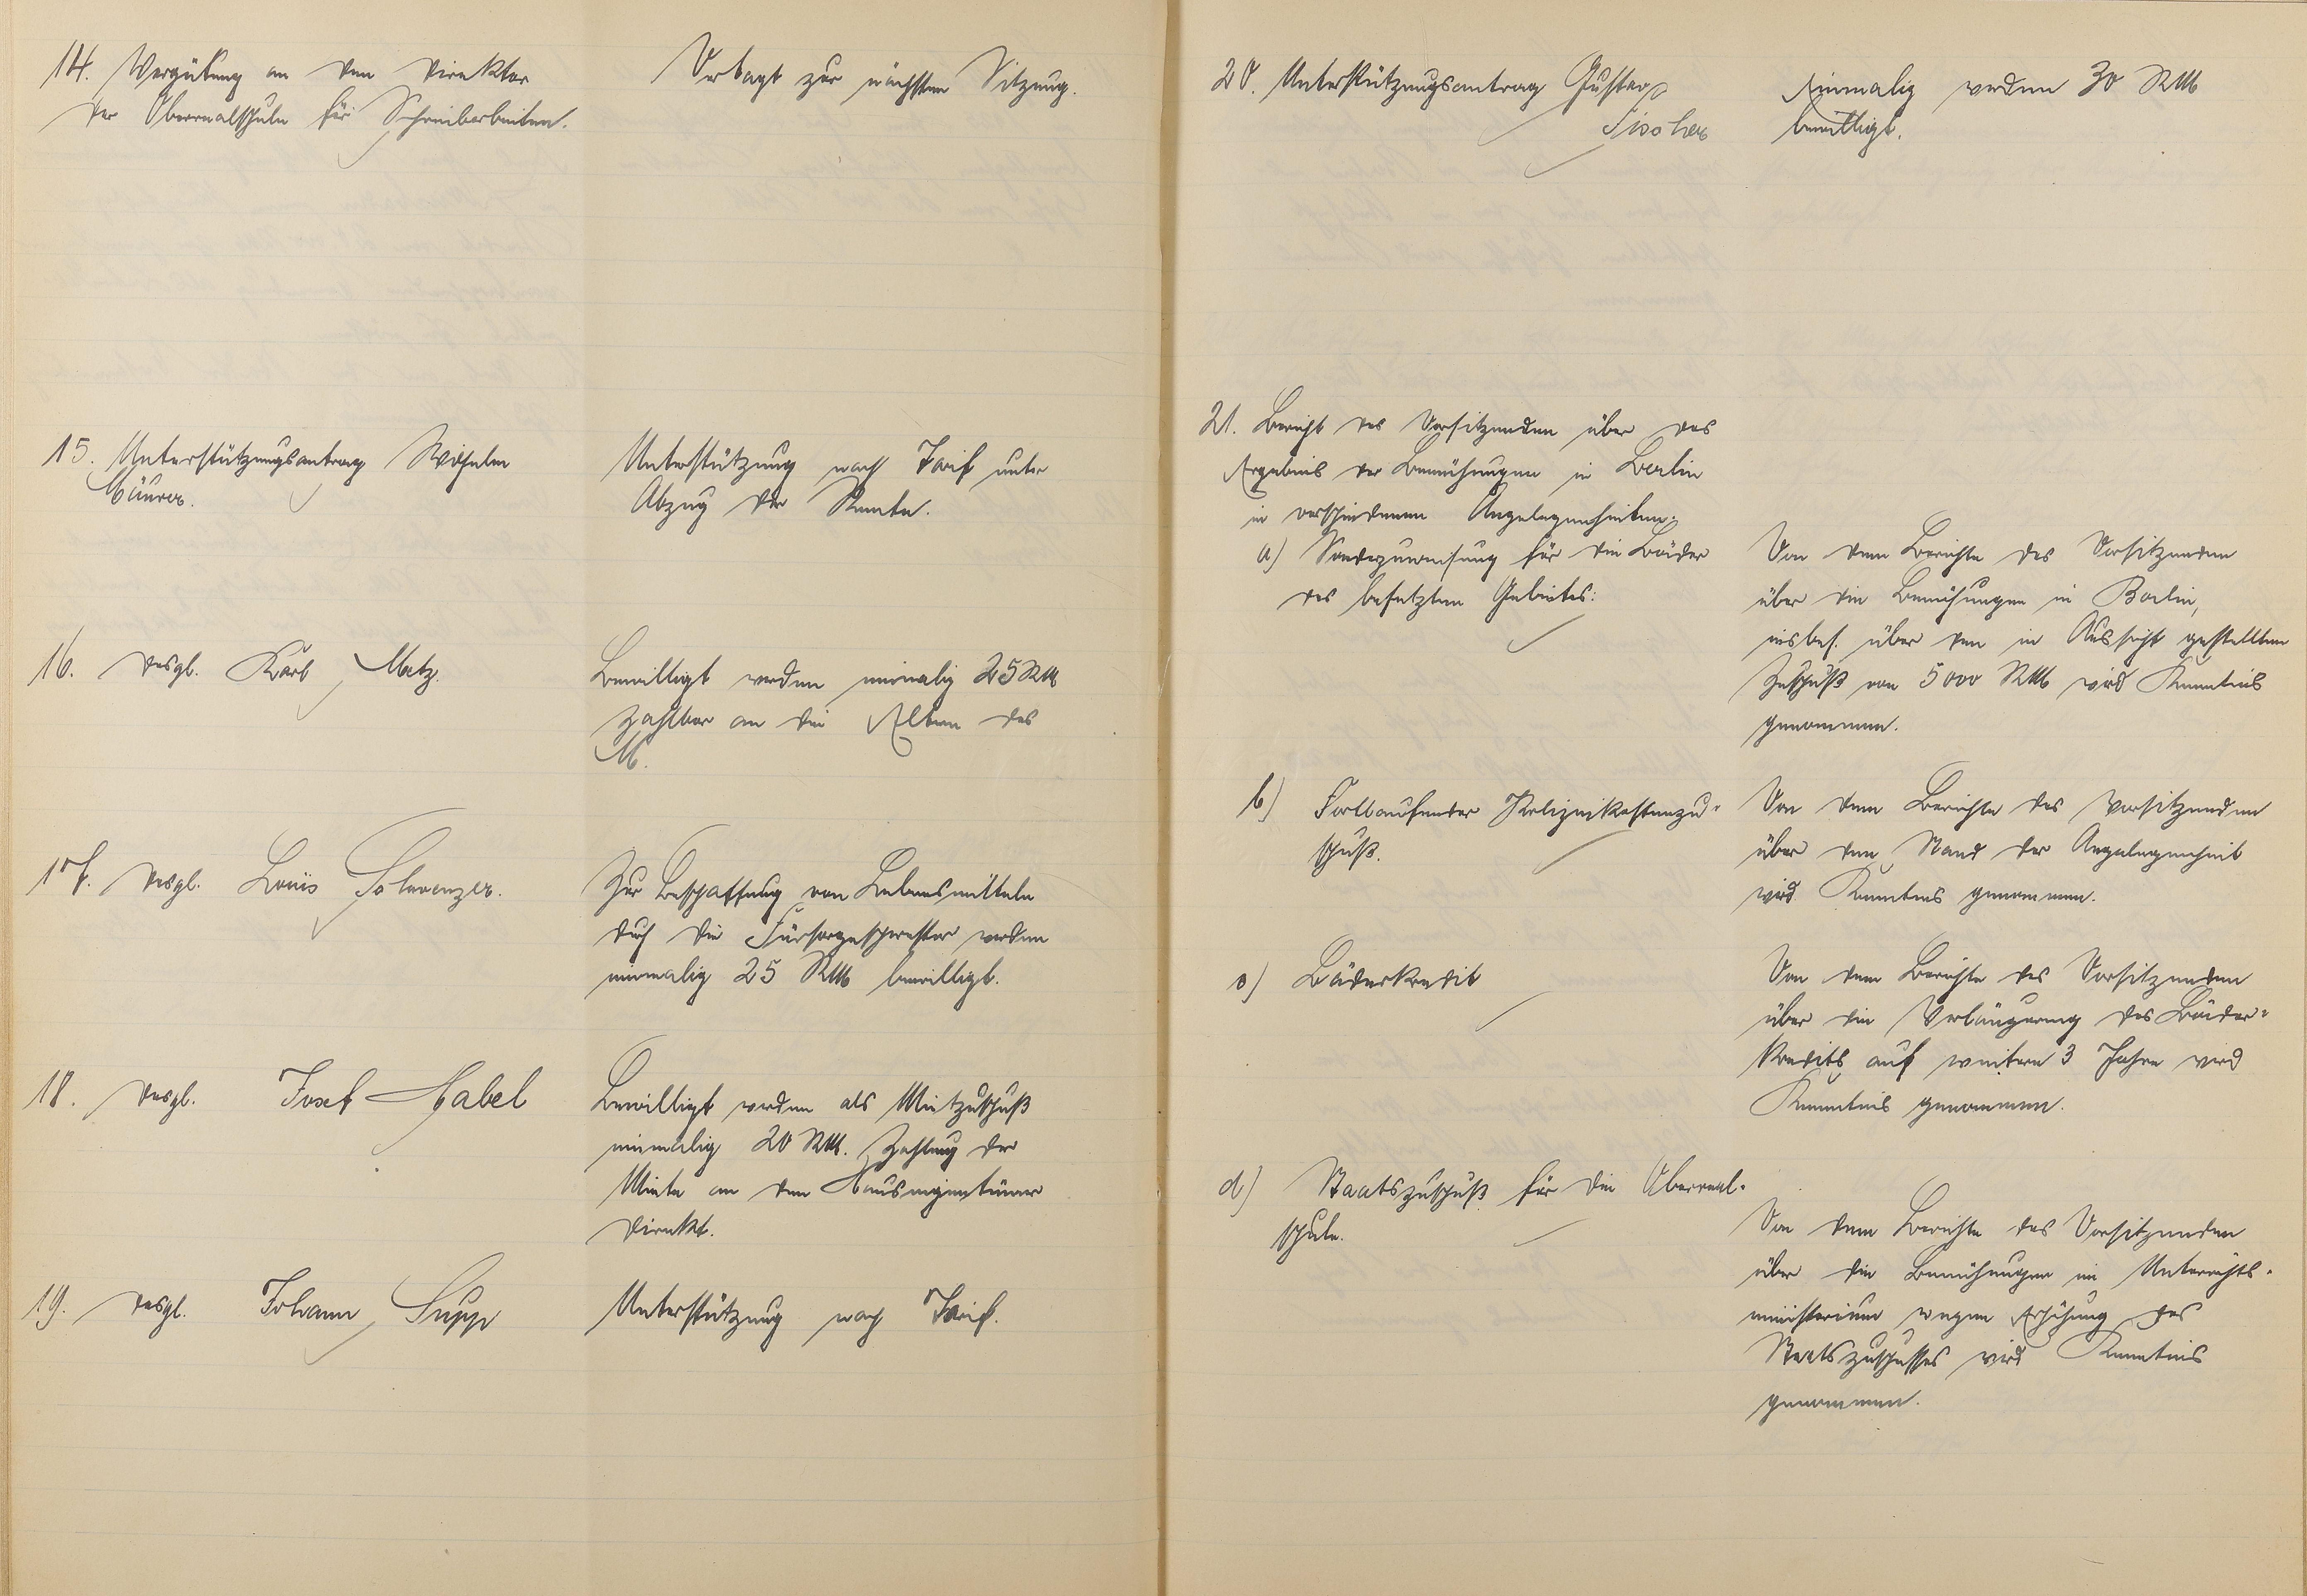 14. Vergütung an den Direktor
der Oberrealschule für Schreibarbeiten.
Vertagt zur nächsten Sitzung.
15. Unterstützungsantrag Wilhelm
Unterstützung nach Tarif unter
Abzug der Rente.
16. desgl. Karl Metz.
Bewilligt werden einmalig 25 RM
zahlbar an die Eltern des
M.
17. desgl. Louis
Zur Beschaffung von Lebensmitteln
durch die Fürsorgeschwester werden
einmalig 25 RM bewilligt.
18. desgl. Josef Habel
Bewilligt werden als Mietzuschuß
einmalig 20 RM. Zahlung der
Miete an den Hauseigentümer
direkt.
19. desgl. Johann Supp
Unterstützung nach Tarif.
20. Unterstützungsantrag Gustav
Fischer
Einmalig werden 30 RM
bewilligt.
21. Bericht des Vorsitzenden über das
Ergebnis der Bemühungen in Berlin
in verschiedenen Angelegenheiten.
a) Sonderzuweisung für die Bäder
des besetzten Gebietes:
Von dem Berichte des Vorsitzenden
über die Bemühungen in Berlin,
insbes. über den in Aussicht gestellten
Zuschuß von 5000 RM wird Kenntnis
genommen.
b) Fortlaufender Polizeikostenzu-
schuß.
Von dem Berichte des Vorsitzenden
über den Stand der Angelegenheit
wird Kenntnis genommen.
c) Bäderkredit
Von dem Berichte des Vorsitzenden
über die Verlängerung des Bäder-
kredits auf weitere 3 Jahre wird
Kenntnis genommen.
d) Staatszuschuß für die Oberreal-
schule.
Von dem Berichte des Vorsitzenden
über die Bemühungen im Unterrichts-
ministerium wegen Erhöhung des
Staatszuschusses wird Kenntnis
genommen.